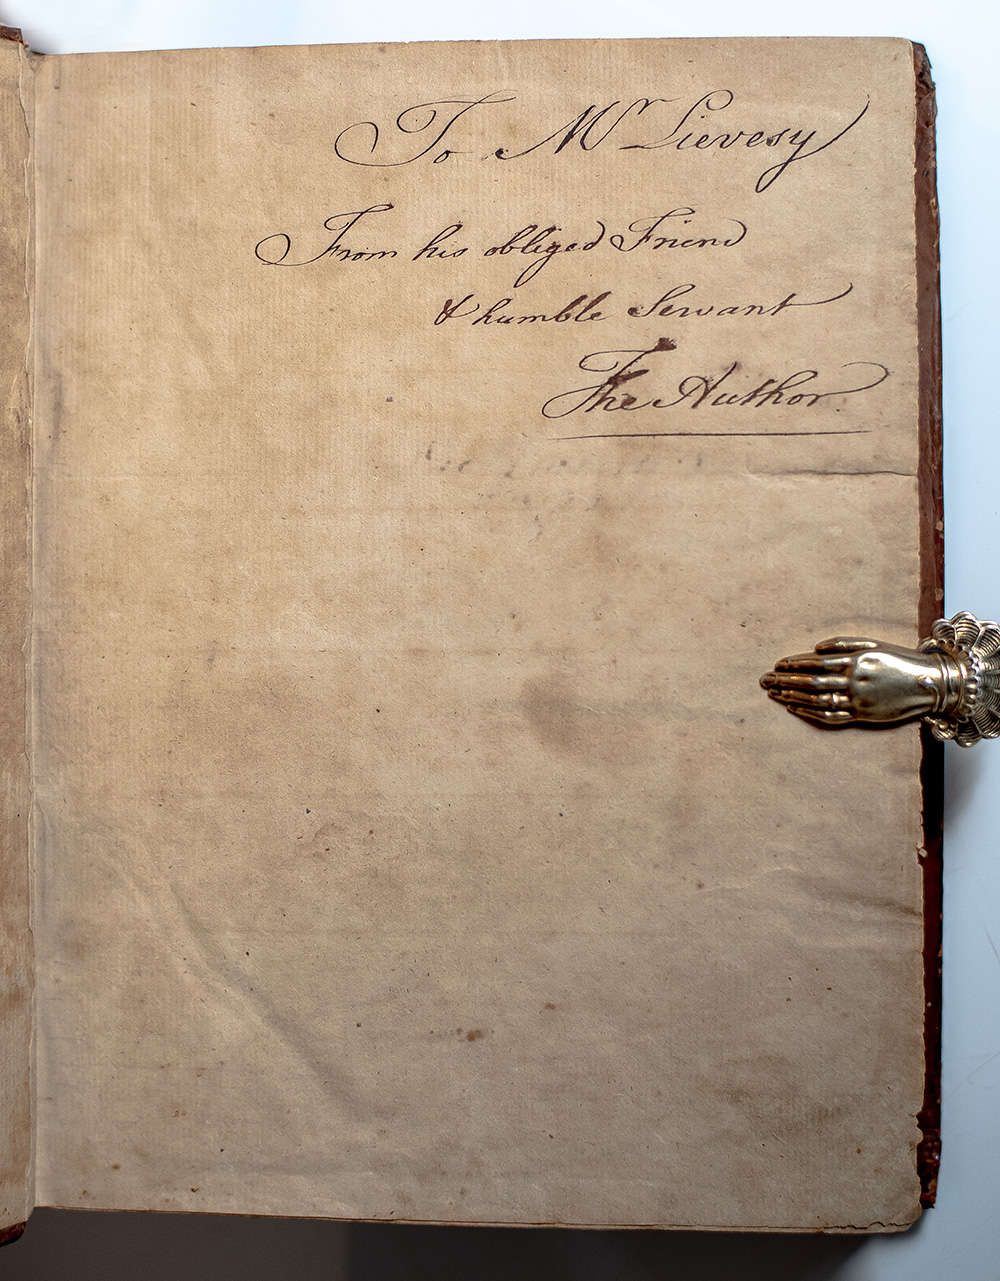 To Mr Lievesy
From his obliged Friend
& humble Servant
The Author